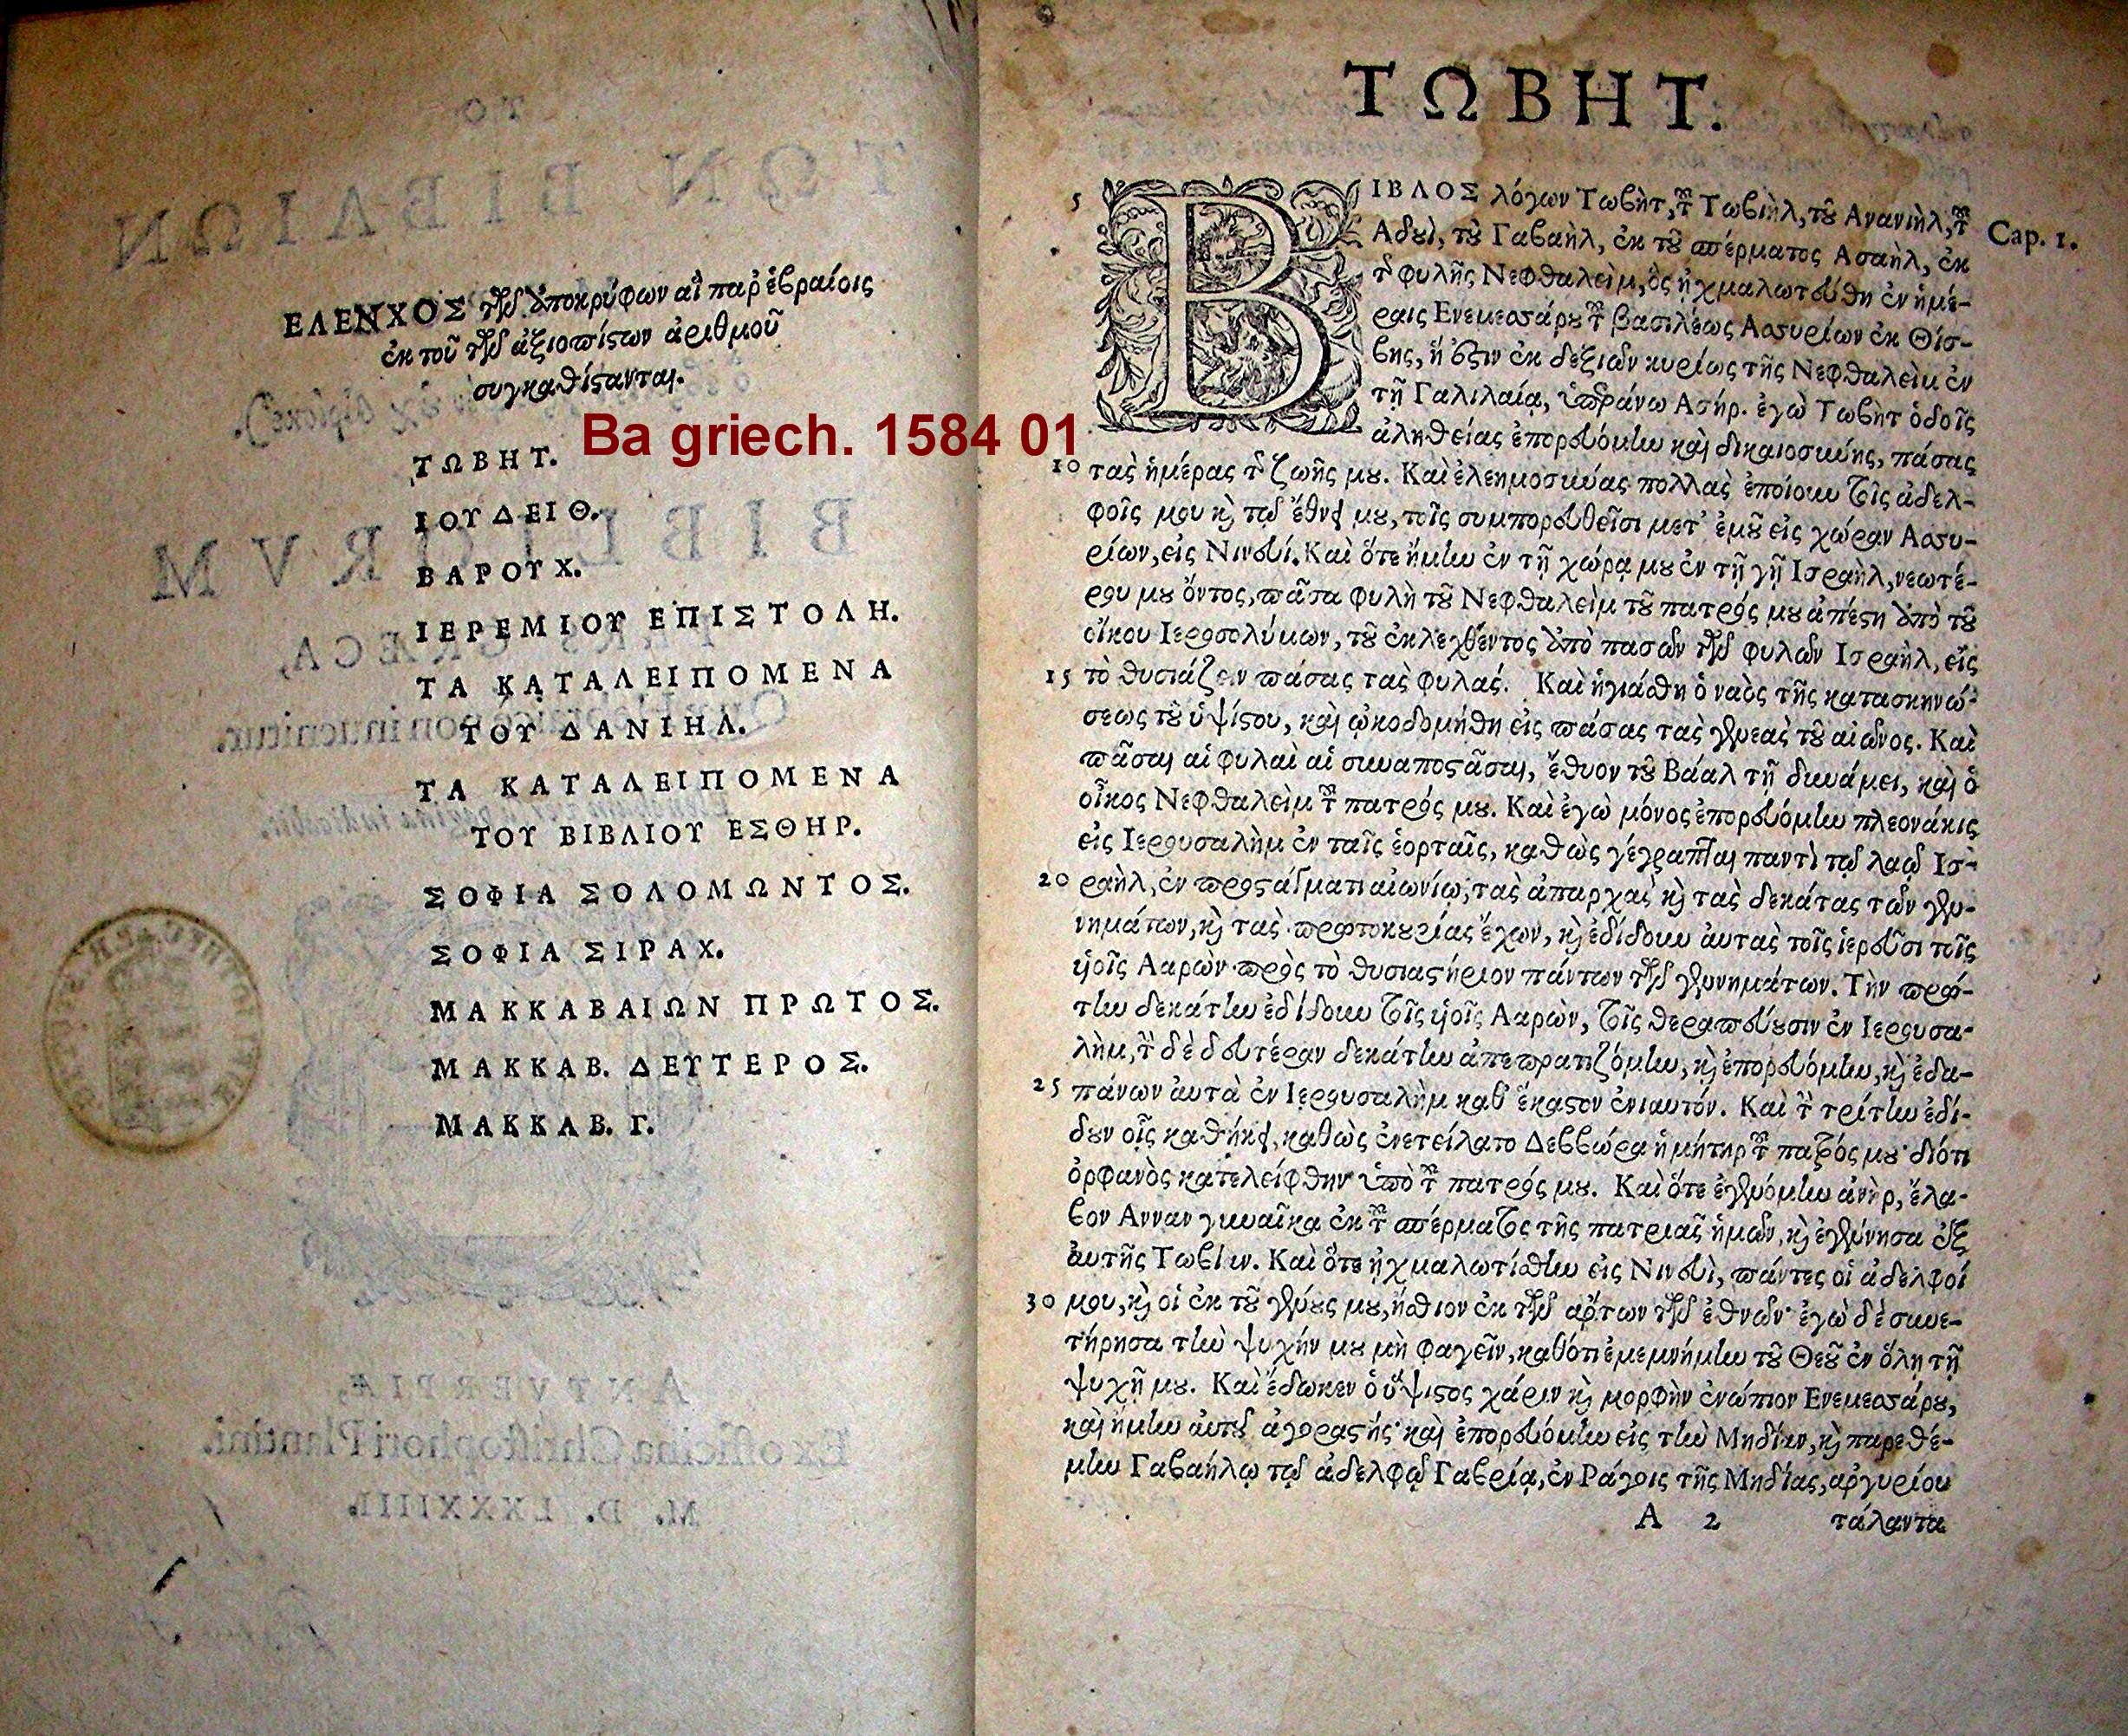 ΕΛΕΝΧΟΣ τῶν ἀποκρύφων αἳ παρ ἑβραίοις
ἐκ τοῦ τῶν ἀξιοπίστων ἀριθμοῦ
συγκαθίστανται.
ΤΩΒΗΤ.
ΙΟΥΔΕΙΘ.
ΒΑΡΟΥΧ.
ΙΕΡΕΜΙΟΥ ΕΠΙΣΤΟΛΗ.
ΤΑ ΚΑΤΑΛΕΙΠΟΜΕΝΑ
ΤΟΥ ΔΑΝΙΗΛ.
ΤΑ ΚΑΤΑΛΕΙΠΟΜΕΝΑ
ΤΟΥ ΒΙΒΛΙΟΥ ΕΣΘΗΡ.
ΣΟΦΙΑ ΣΟΛΟΜΩΝΤΟΣ.
ΣΟΦΙΑ ΣΙΡΑΧ.
ΜΑΚΚΑΒΑΙΩΝ ΠΡΩΤΟΣ.
ΜΑΚΚΑΒ. ΔΕΥΤΕΡΟΣ.
ΜΑΚΚΑΒ. Γ.
Ba griech. 1584 01
ΤΩΒΗΤ.
5 ΒΙΒΛΟΣ λόγων Τωβὴτ, τοῦ Τωβιὴλ, τοῦ Ανανιὴλ, τοῦ Cap. 1.
Αδουὶ, τοῦ Γαβαὴλ, ἐκ τοῦ σπέρματος Ασαὴλ, ἐκ
τῆς φυλῆς Νεφθαλεὶμ, ὃς ᾐχμαλωτεύθη ἐν ἡμέ-
ραις Ενεμεσσάρου τοῦ βασιλέως Ασσυρίων ἐκ Θίσ-
βης, ἥ ἐστιν ἐκ δεξιῶν κυρίως τῆς Νεφθαλεὶμ ἐν
τῇ Γαλιλαίᾳ, ὑπεράνω Ασήρ. ἐγὼ Τωβὴτ ὁδοῖς
ἀληθείας ἐπορευόμην καὶ δικαιοσύνης, πάσας
10 τὰς ἡμέρας τῆς ζωῆς μου. Καὶ ἐλεημοσύνας πολλὰς ἐποίουν τοῖς ἀδελ-
φοῖς μου καὶ τῷ ἔθνει μου, τοῖς συμπορευθεῖσι μετ' ἐμοῦ εἰς χώραν Ασσυ-
ρίων, εἰς Νινευί. Καὶ ὅτε ἤμην ἐν τῇ χώρᾳ μου ἐν τῇ γῇ Ισραὴλ, νεωτέ-
ρου μου ὄντος, πᾶσα φυλὴ τοῦ Νεφθαλεὶμ τοῦ πατρός μου ἀπέστη ἀπὸ τοῦ
οἴκου Ιεροσολύμων, τοῦ ἐκλεχθέντος ἀπὸ πασῶν τῶν φυλῶν Ισραὴλ, εἰς
15 τὸ θυσιάζειν πάσας τὰς φυλάς. Καὶ ἡγιάσθη ὁ ναὸς τῆς κατασκηνώ-
σεως τοῦ ὑψίστου, καὶ ᾠκοδομήθη εἰς πάσας τὰς γενεὰς τοῦ αἰῶνος. Καὶ
πᾶσαι αἱ φυλαὶ αἱ συναποστᾶσαι, ἔθυον τοῦ Βάαλ τῇ δυνάμει, καὶ ὁ
οἶκος Νεφθαλεὶμ τοῦ πατρός μου. Καὶ ἐγὼ μόνος ἐπορευόμην πλεονάκις
εἰς Ιερουσαλὴμ ἐν ταῖς ἑορταῖς, καθὼς γέγραπται παντὶ τῷ λαῷ Ισ-
20 ραὴλ, ἐν προστάγματι αἰωνίῳ, τὰς ἀπαρχὰς καὶ τὰς δεκάτας τῶν γεν-
νημάτων, καὶ τὰς πρωτοκουρίας ἔχων, καὶ ἐδίδουν αὐτὰς τοῖς ἱερεῦσι τοῖς
υἱοῖς Ααρὼν πρὸς τὸ θυσιαστήριον πάντων τῶν γεννημάτων. Τὴν πρώ-
την δεκάτην ἐδίδουν τοῖς υἱοῖς Ααρὼν, τοῖς θεραπεύουσιν ἐν Ιερουσα-
λὴμ, τὴν δὲ δευτέραν δεκάτην ἀπεπρατιζόμην, καὶ ἐπορευόμην, καὶ ἐδα-
25 πάνων αὐτὰ ἐν Ιερουσαλὴμ καθ' ἕκαστον ἐνιαυτόν. Καὶ τὴν τρίτην ἐδί-
δουν οἷς καθήκει, καθὼς ἐνετείλατο Δεββώρα ἡ μήτηρ τοῦ πατρός μου· διότι
ὀρφανὸς κατελείφθην ὑπὸ τοῦ πατρός μου. Καὶ ὅτε ἐγενόμην ἀνὴρ, ἔλα-
βον Ανναν γυναῖκα ἐκ τοῦ σπέρματος τῆς πατριᾶς ἡμῶν, καὶ ἐγέννησα ἐξ
αὐτῆς Τωβίαν. Καὶ ὅτε ᾐχμαλωτίσθην εἰς Νινευὶ, πάντες οἱ ἀδελφοί
30 μου, καὶ οἱ ἐκ τοῦ γένους μου, ἤσθιον ἐκ τῶν ἄρτων τῶν ἐθνῶν· ἐγὼ δὲ συνε-
τήρησα τὴν ψυχήν μου μὴ φαγεῖν, καθότι ἐμεμνήμην τοῦ Θεοῦ ἐν ὅλῃ τῇ
ψυχῇ μου. Καὶ ἔδωκεν ὁ ὕψιστος χάριν καὶ μορφὴν ἐνώπιον Ενεμεσσάρου,
καὶ ἤμην αὐτοῦ ἀγοραστής· καὶ ἐπορευόμην εἰς τὴν Μηδίαν, καὶ παρεθέ-
μην Γαβαήλῳ τῷ ἀδελφῷ Γαβρία, ἐν Ράγοις τῆς Μηδίας, ἀργυρίου
A 2 τάλαντα